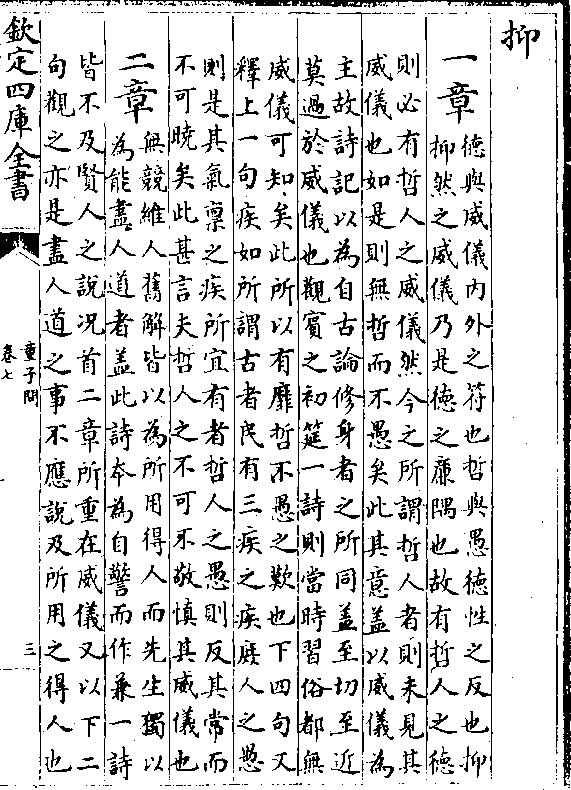 抑
一章
德與威儀内外之符也哲與愚德性之反也抑
抑然之威儀乃是德之廉隅也故有哲人之德
則必有哲人之威儀然今之所謂哲人者則未見其
威儀也如是則無哲而不愚矣此其意蓋以威儀為
主故詩記以為自古論修身者之所同蓋至切至近
莫過於威儀也觀賓之初筵一詩則當時習俗都無
威儀可知矣此所以有靡哲不愚之歎也下四句又
釋上一句疾如所謂古者民有三疾之疾庶人之愚
則是其氣禀之疾所宜有者哲人之愚則反其常而
不可曉矣此甚言夫哲人之不可不敬慎其威儀也
二章
無競維人舊解皆以為所用得人而先生獨以
為能盡人道者蓋此詩本為自警而作兼一詩
皆不及賢人之說況首二章所重在威儀又以下二
句觀之亦是盡人道之事不應說及所用之得人也
欽定四庫全書
童子問
卷七
三